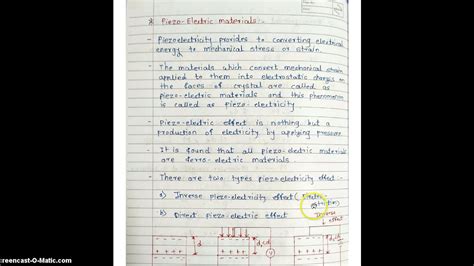 Piezo-Electric materials:-
- Piezoelectricity provides to converting electrical
energy to mechanical stress or strain.
- The materials which convert mechanical strain
applied to them into electrostatic charges on
the faces of crystal are called as
piezo-electric materials and this phenomenon
is called as piezo-electricity
- Piezo-electric effect is nothing but a
production of electricity by applying pressure
- It is found that all piezo-electric materials
are ferro-electric materials.
- There are two types piezo-electricity effect -
a) Inverse piezo-electricity effect
b) Direct piezo-electric effect
Inverse
effect
d
d
V
creencast-O-Matic.com